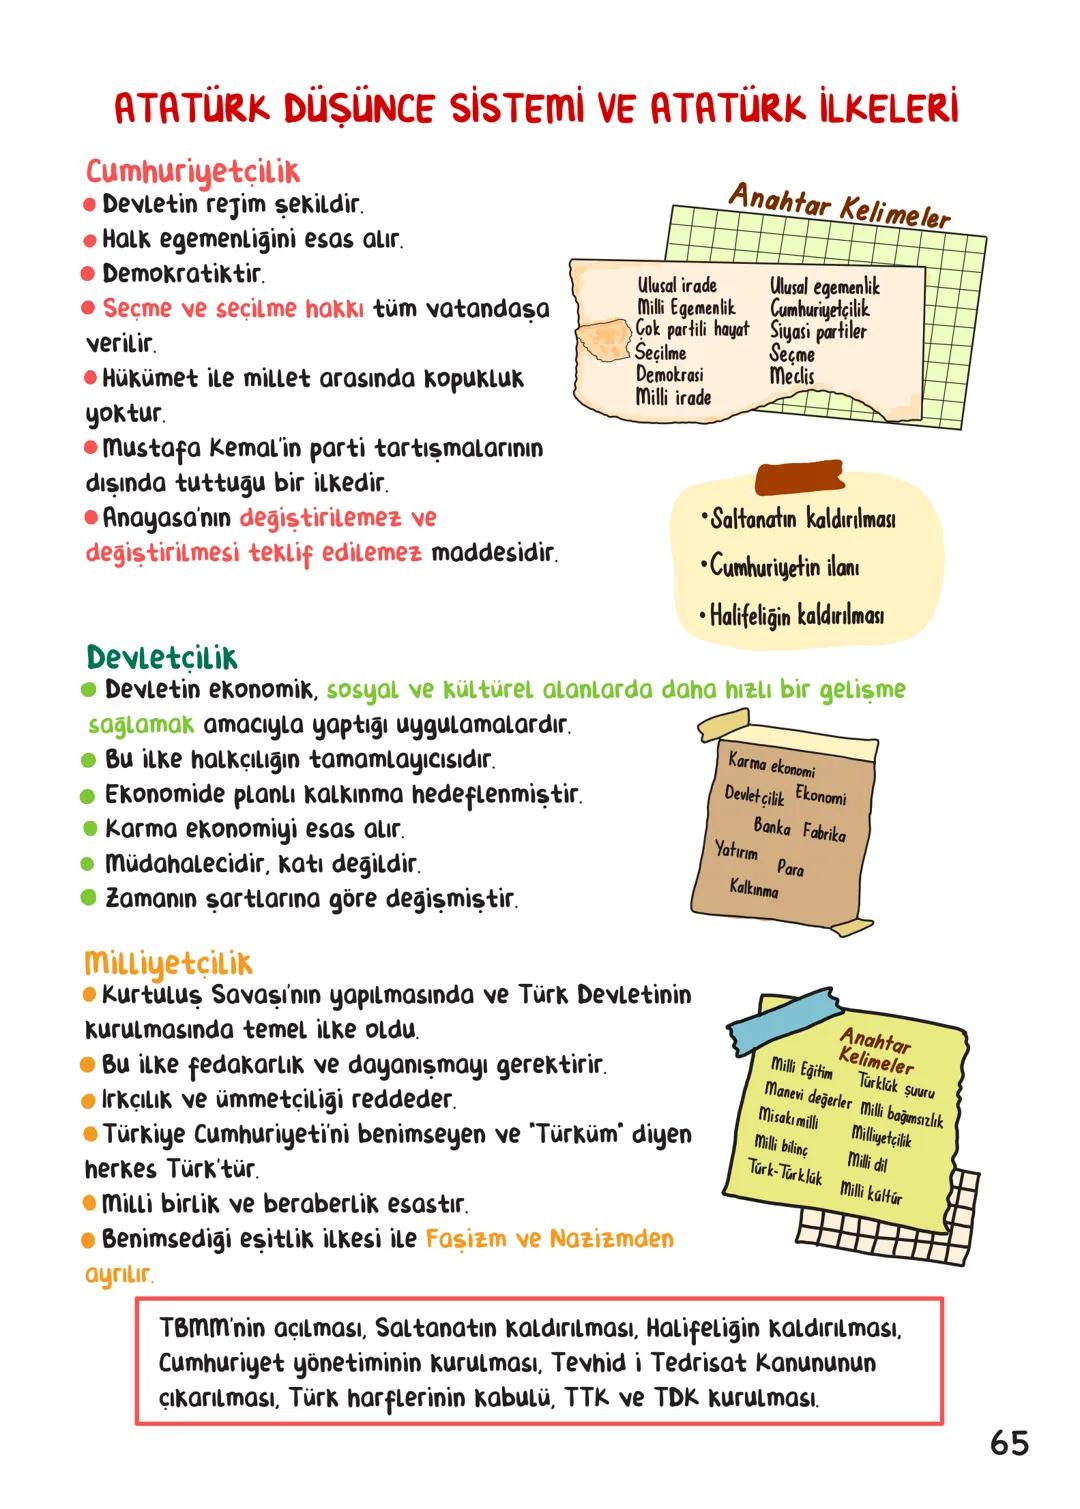 ATATÜRK DÜŞÜNCE SİSTEMİ VE ATATÜRK İLKELERİ
Cumhuriyetçilik
• Devletin rejim şekildir.
• Halk egemenliğini esas alır.
• Demokratiktir.
• Seçme ve seçilme hakkı tüm vatandaşa
verilir.
• Hükümet ile millet arasında kopukluk
yoktur.
• Mustafa Kemal'in parti tartışmalarının
dışında tuttuğu bir ilkedir.
• Anayasa'nın değiştirilemez ve
değiştirilmesi teklif edilemez maddesidir.
Anahtar Kelimeler
Ulusal irade Ulusal egemenlik
Milli Egemenlik Cumhuriyetçilik
Çok partili hayat Siyasi partiler
Seçilme Seçme
Demokrasi Meclis
Milli irade
• Saltanatın kaldırılması
• Cumhuriyetin ilanı
• Halifeliğin kaldırılması
Devletçilik
• Devletin ekonomik, sosyal ve kültürel alanlarda daha hızlı bir gelişme
sağlamak amacıyla yaptığı uygulamalardır.
• Bu ilke halkçılığın tamamlayıcısıdır.
• Ekonomide planlı kalkınma hedeflenmiştir.
• Karma ekonomiyi esas alır.
• Müdahalecidir, katı değildir.
• Zamanın şartlarına göre değişmiştir.
Karma ekonomi
Devletçilik Ekonomi
Banka Fabrika
Yatırım Para
Kalkınma
Milliyetçilik
• Kurtuluş Savaşı'nın yapılmasında ve Türk Devletinin
kurulmasında temel ilke oldu.
• Bu ilke fedakarlık ve dayanışmayı gerektirir.
• Irkçılık ve ümmetçiliği reddeder.
• Türkiye Cumhuriyeti'ni benimseyen ve "Türküm" diyen
herkes Türk'tür.
• Milli birlik ve beraberlik esastır.
• Benimsediği eşitlik ilkesi ile Faşizm ve Nazizmden
ayrılır.
Anahtar
Kelimeler
Milli Eğitim Türklük şuuru
Manevi değerler Milli bağımsızlık
Misakımilli Milliyetçilik
Milli bilinç Milli dil
Türk-Türklük Milli kültür
TBMM'nin açılması, Saltanatın kaldırılması, Halifeliğin kaldırılması,
Cumhuriyet yönetiminin kurulması, Tevhid i Tedrisat Kanununun
çıkarılması, Türk harflerinin kabulü, TTK ve TDK kurulması.
65